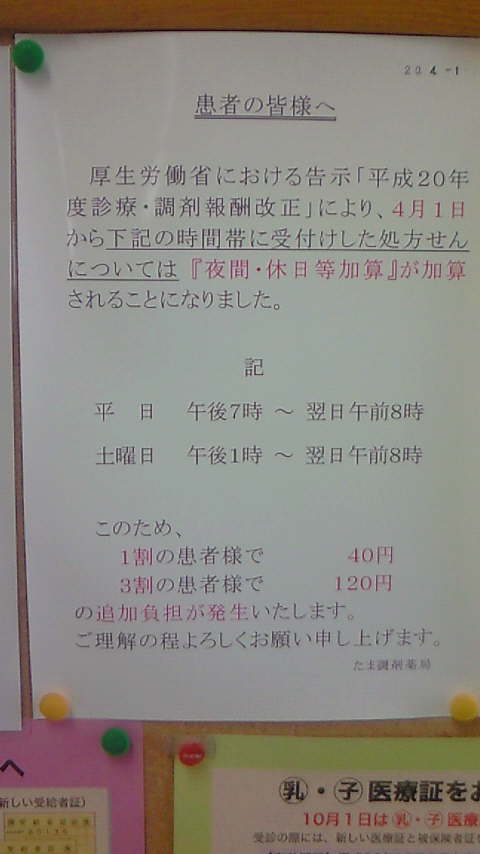 20.4.-1
患者の皆様へ
厚生労働省における告示「平成20年
度診療・調剤報酬改正」により、4月1日
から下記の時間帯に受付けした処方せん
については『夜間・休日等加算』が加算
されることになりました。
記
平　日　午後7時 ～ 翌日午前8時
土曜日　午後1時 ～ 翌日午前8時
このため、
1割の患者様で　40円
3割の患者様で　120円
の追加負担が発生いたします。
ご理解の程よろしくお願い申し上げます。
たま調剤薬局
へ
新しい受給者証）
㊛